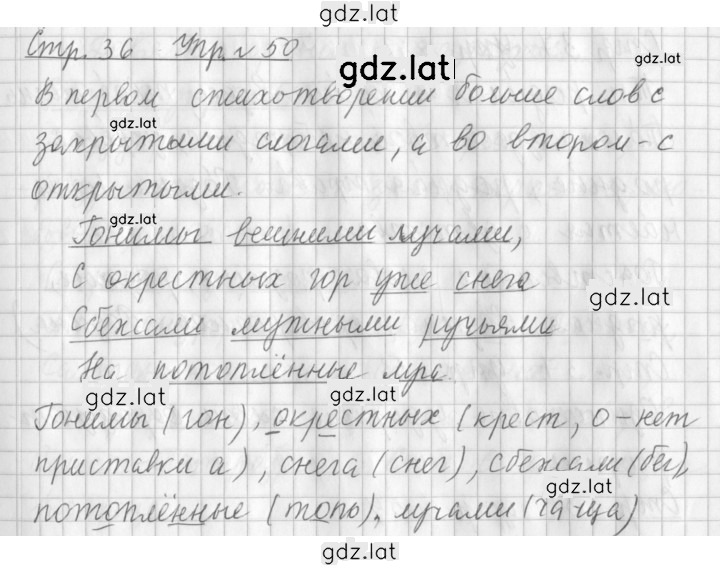 gdz.lat
Стр. 36 Упр № 50
gdz.lat
В первом стихотворении больше слов с
gdz.lat
закрытыми слогами, а во втором - с
открытыми.
gdz.lat
Гонимы вешними лучами,
С окрестных гор уже снега
gdz.lat
Сбежали мутными ручьями
На потоплённые луга.
gdz.lat gdz.lat
Гонимы (гон), окрестных (крест, о - нет
приставки а), снега (снег), сбежали (бег),
gdz.lat
потоплённые (топь), лучами (ча-ща)
gdz.lat